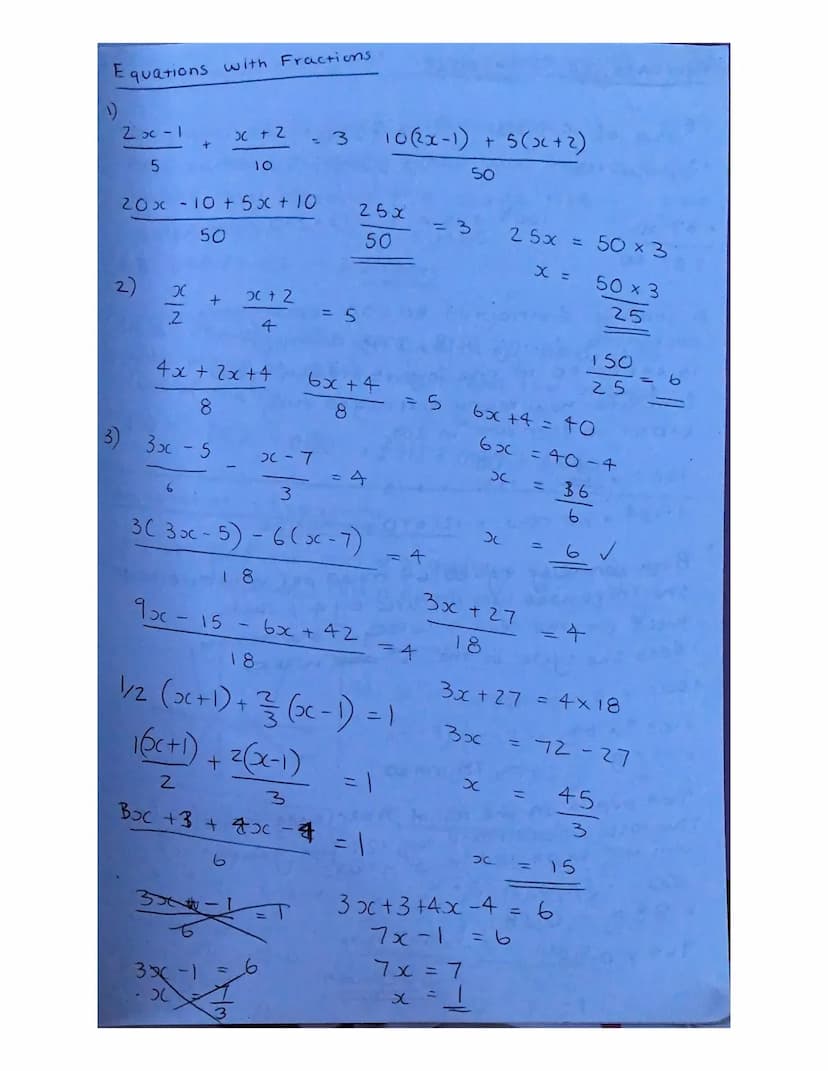 Equations with Fractions
1)
(2x - 1)/5 + (x + 2)/10 = 3
(10(2x - 1) + 5(x + 2))/50
(20x - 10 + 5x + 10)/50
25x/50 = 3
25x = 50 × 3
x = (50 × 3)/25
150/25 = 6
2)
x/2 + (x + 2)/4 = 5
(4x + 2x + 4)/8
(6x + 4)/8 = 5
6x + 4 = 40
6x = 40 - 4
x = 36/6
x = 6 ✓
3)
(3x - 5)/6 - (x - 7)/3 = 4
(3(3x - 5) - 6(x - 7))/18 = 4
(9x - 15 - 6x + 42)/18 = 4
(3x + 27)/18 = 4
3x + 27 = 4 × 18
3x = 72 - 27
x = 45/3
x = 15
1/2 (x + 1) + 2/3 (x - 1) = 1
1(x + 1)/2 + 2(x - 1)/3 = 1
(3x + 3 + 4x - 4)/6 = 1
(3x - 1)/6 = 1
3x - 1 = 6
x = 7/3
3x + 3 + 4x - 4 = 6
7x - 1 = 6
7x = 7
x = 1